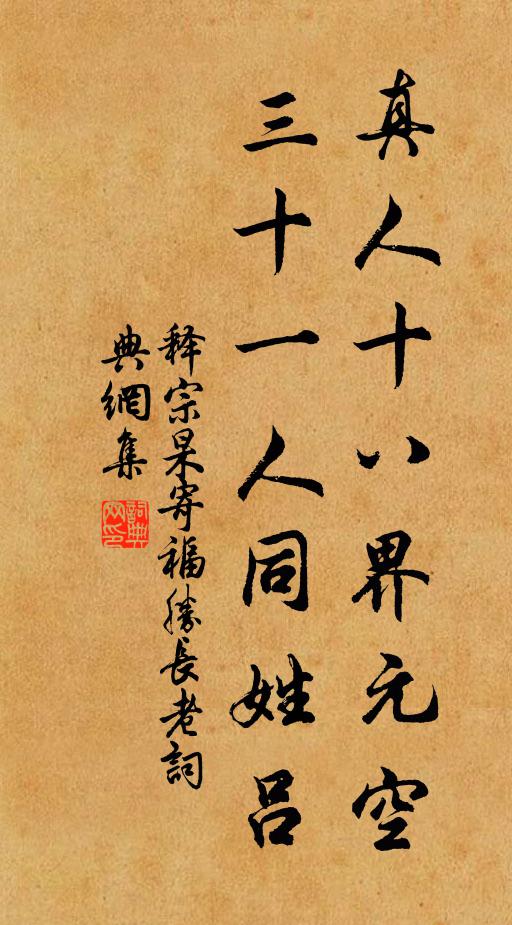 真人十八界元空
三十一人同姓吕
释宗杲寄福勝長老詞
典網集
詞典
网印